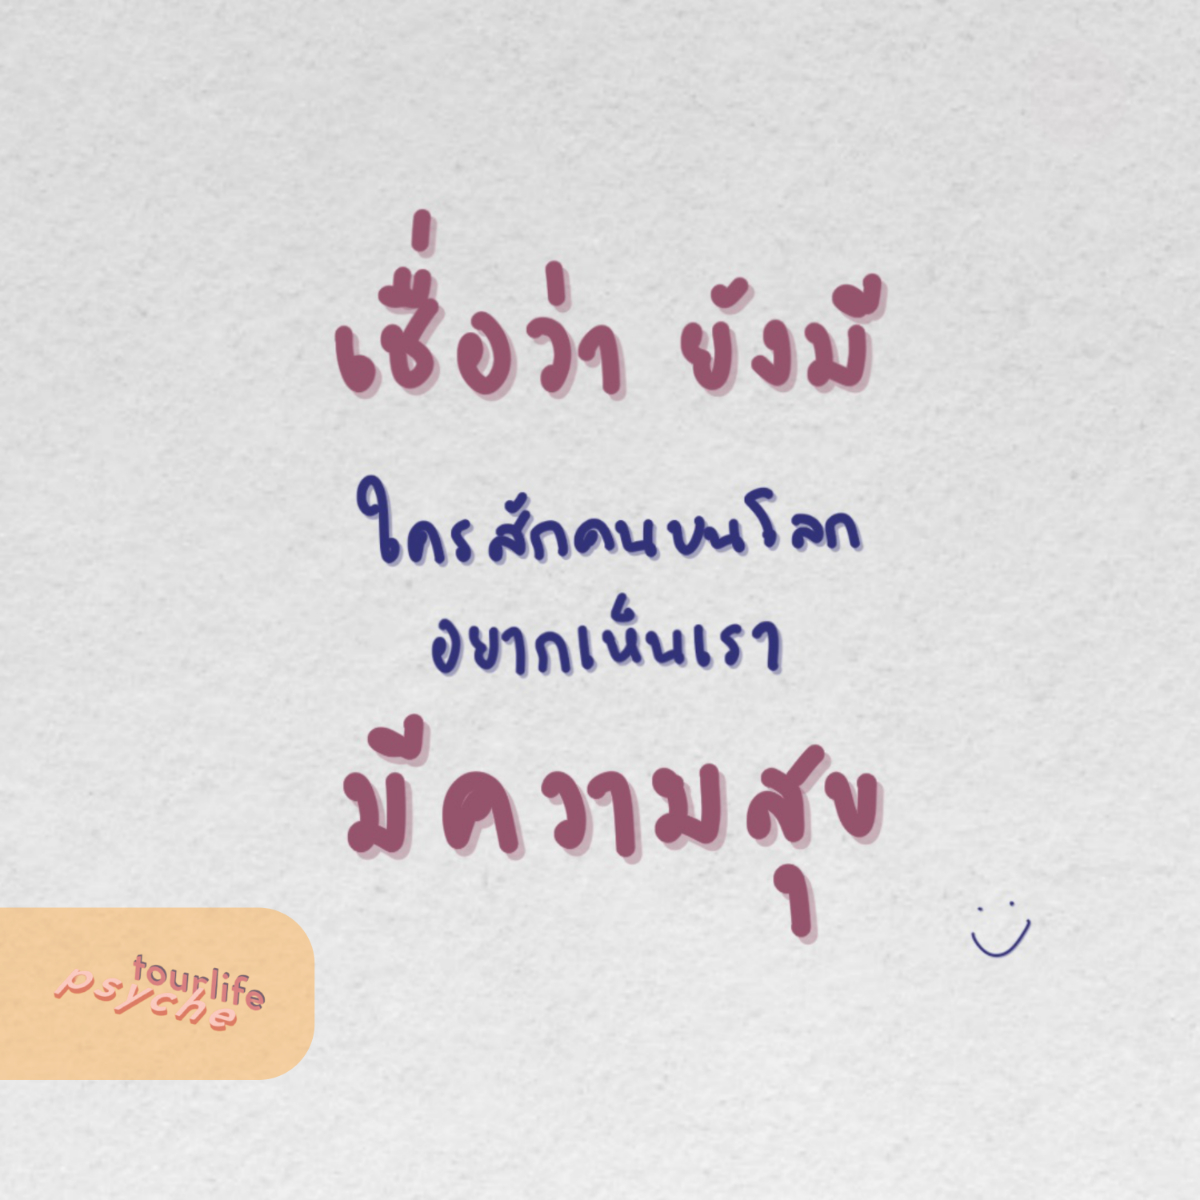 เชื่อว่า ยังมี
ใครสักคนบนโลก
อยากเห็นเรา
มีความสุข
tourlife
psyche